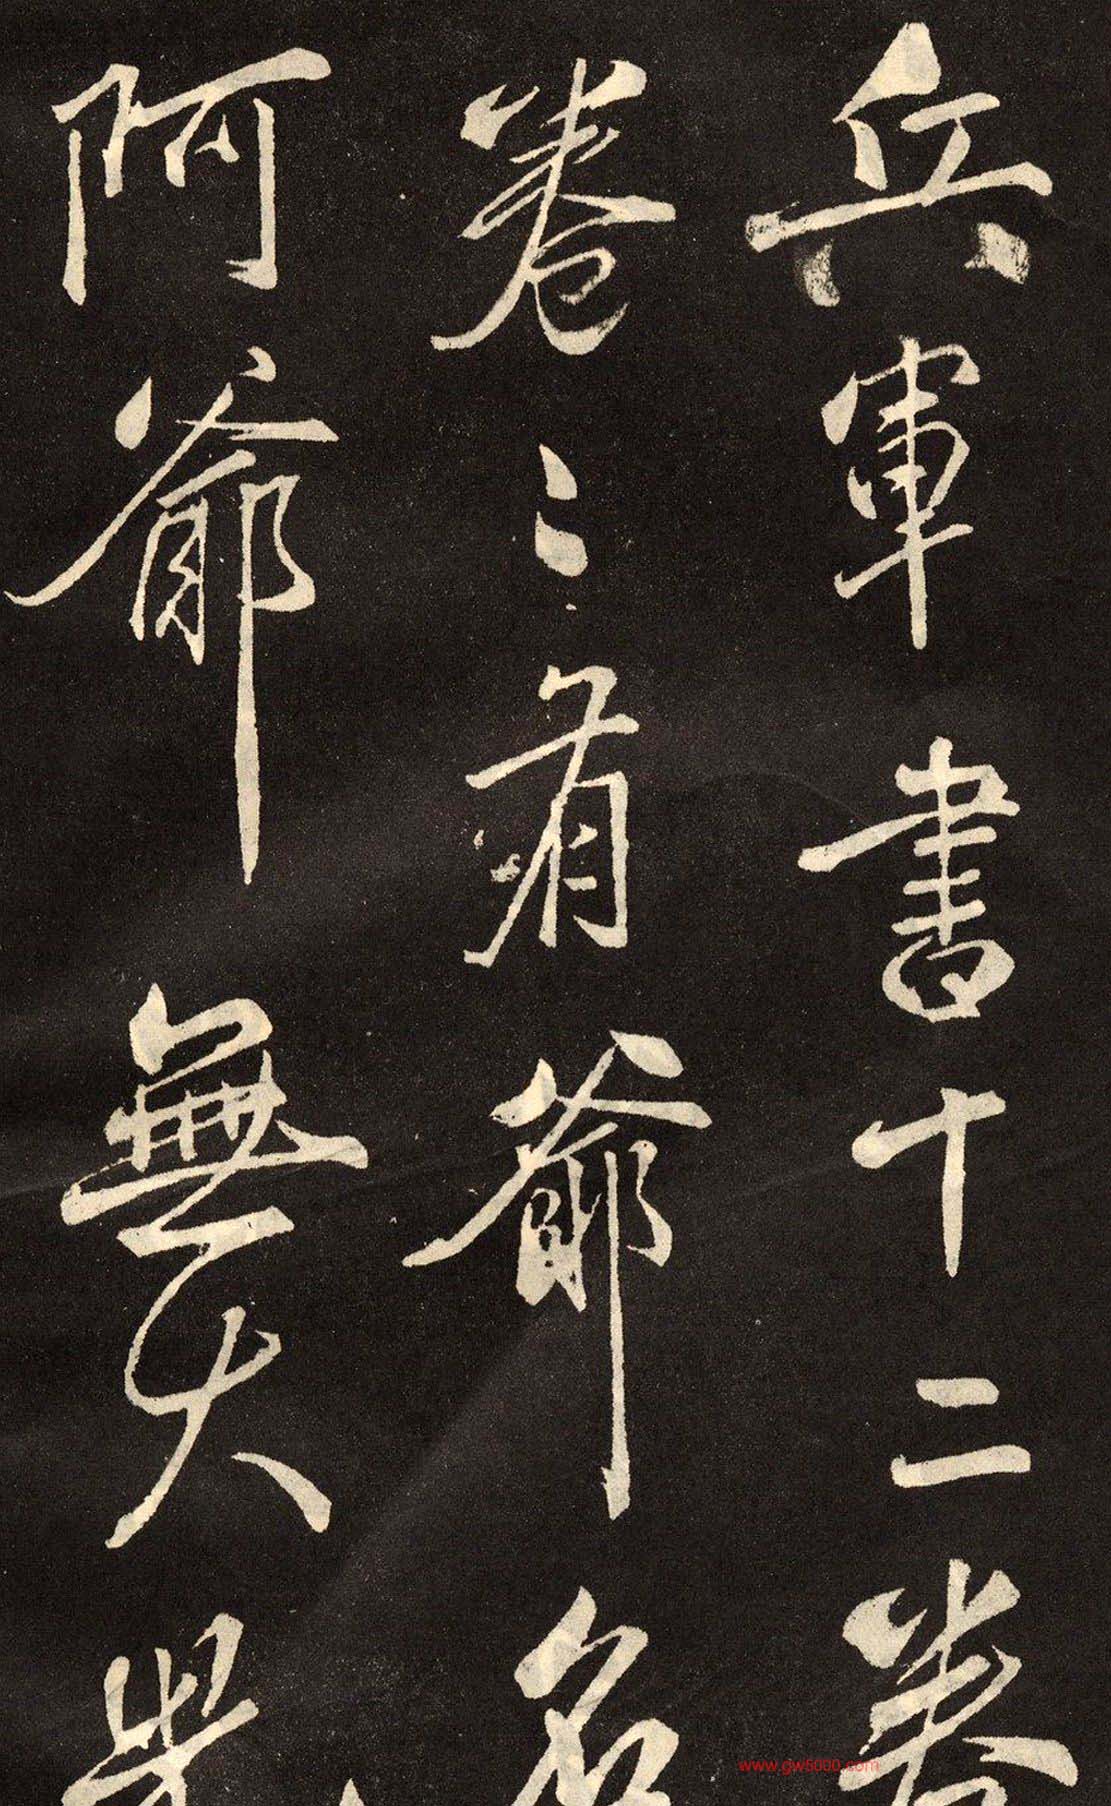 兵軍書十二卷
卷〻有爺名
阿爺無大兒
www.gw5000.com